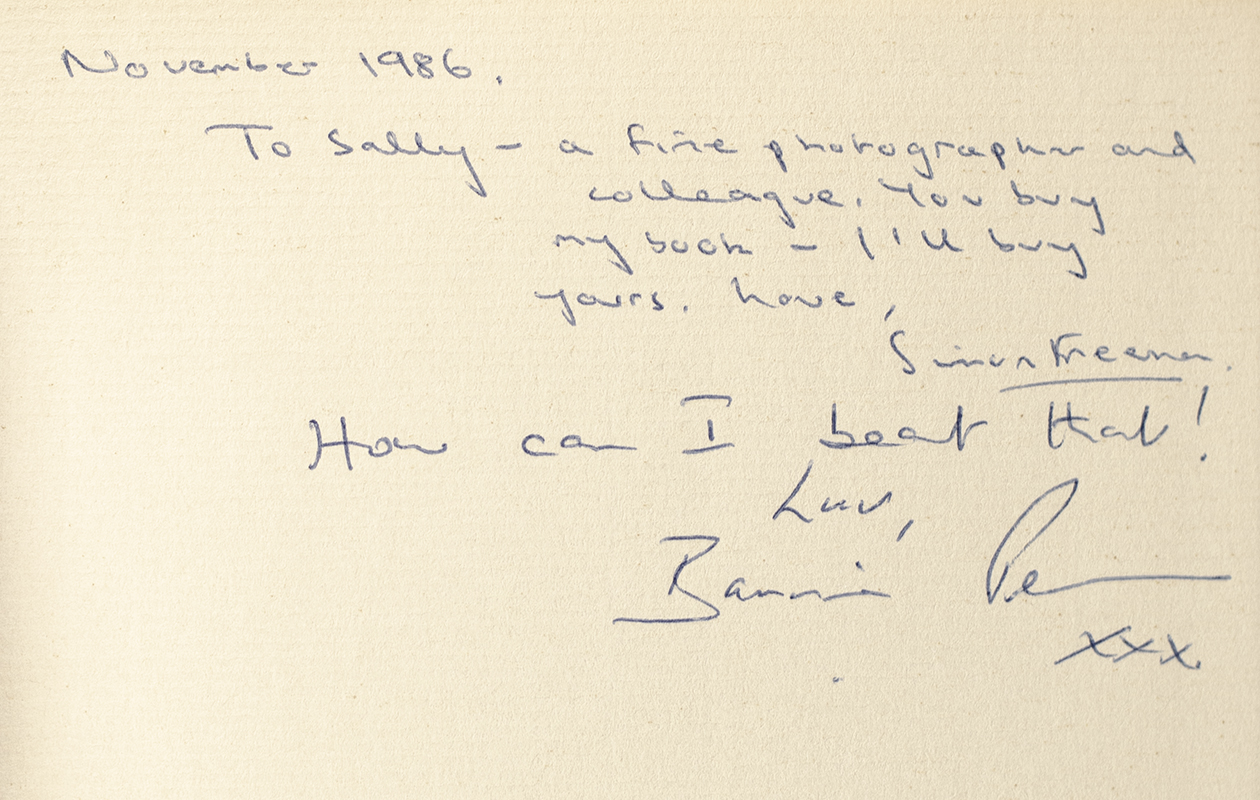 November 1986.
To Sally - a fine photographer and
colleague. You buy
my book - I'll buy
yours. Love,
Simon Freeman.
How can I beat that!
Luv,
Barrie Pen
xxx